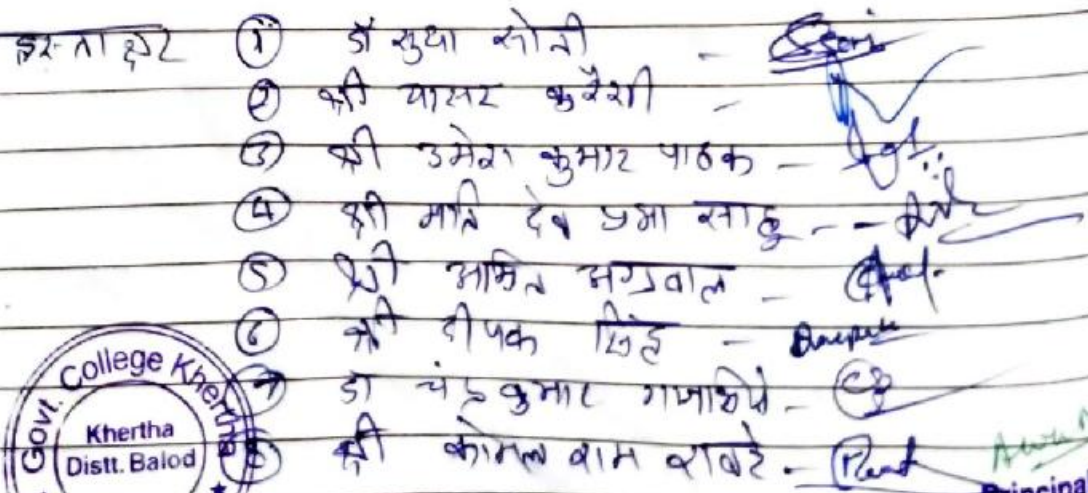 हस्ताक्षर ① डॉ सुधा सोनी -
② श्री यासर कुरैशी -
③ श्री उमेश कुमार पाठक -
④ श्री मति देव प्रभा साहू - -
⑤ श्री अमित अग्रवाल -
⑥ श्री दीपक सिंह - Deepak
⑦ डॉ चंद्रकुमार गजभिये -
⑧ श्री कोमल राम रावटे -
Govt. College Khertha
Khertha
Distt. Balod
Principal